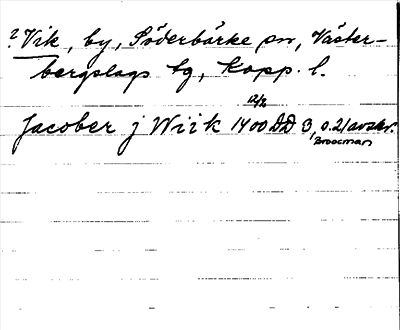 ? Vik, by, Söderbärke sn, Väster-
bergslags tg, Kopp. l.
12/2
Jacober j Wiik 1400 DD 3, o.21 avskr.
Broocman